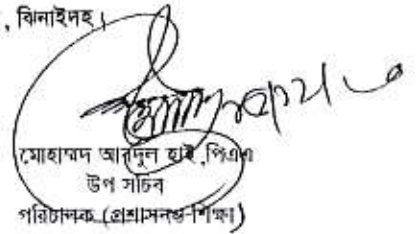 , ঝিনাইদহ।
মোহাম্মদ আবদুল হাই ,পিএএ
উপ সচিব
পরিচালক (প্রশাসনও-শিক্ষা)